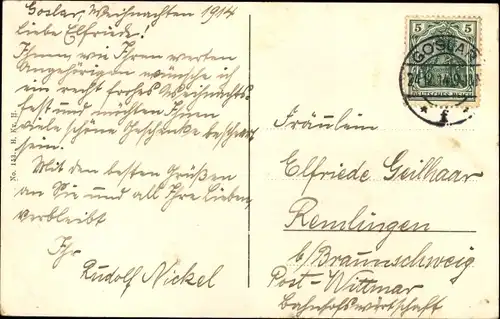 Goslar, Weihnachten 1914
Liebe Elfriede!
Ihnen, wie Ihren werten
Angehörigen wünsche ich
ein recht frohes Weihnachts-
fest und möchten Ihnen
viele schöne Geschenke beschert
sein.
Mit den besten Grüßen
an Sie und all Ihre Lieben
verbleibt
Ihr
Rudolf Nickel
5 5
GOSLAR
DEUTSCHES REICH
* f
Fräulein
Elfriede Geilhaar
Remlingen
b/Braunschweig
Post-Wittmar
Bahnhofswirtschaft